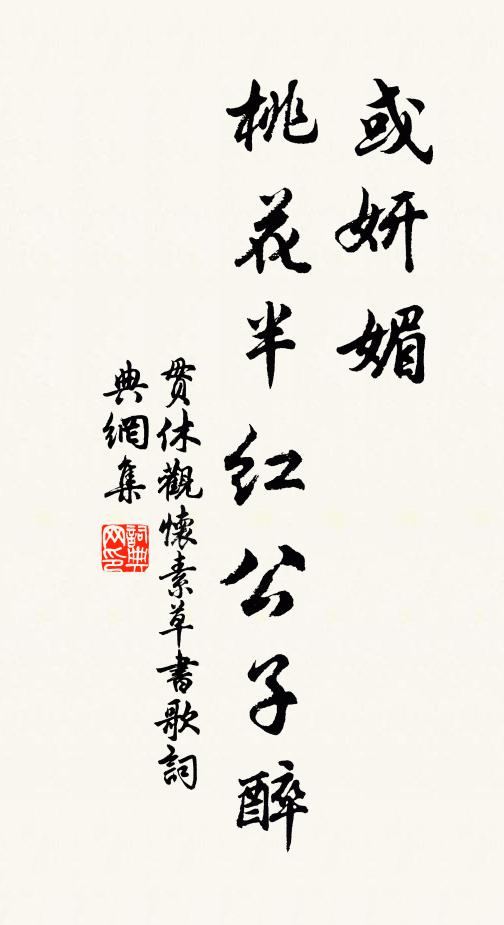 或妍媚
桃花半红公子醉
贯休觀懷素草書歌詞
典網集
詞典網印